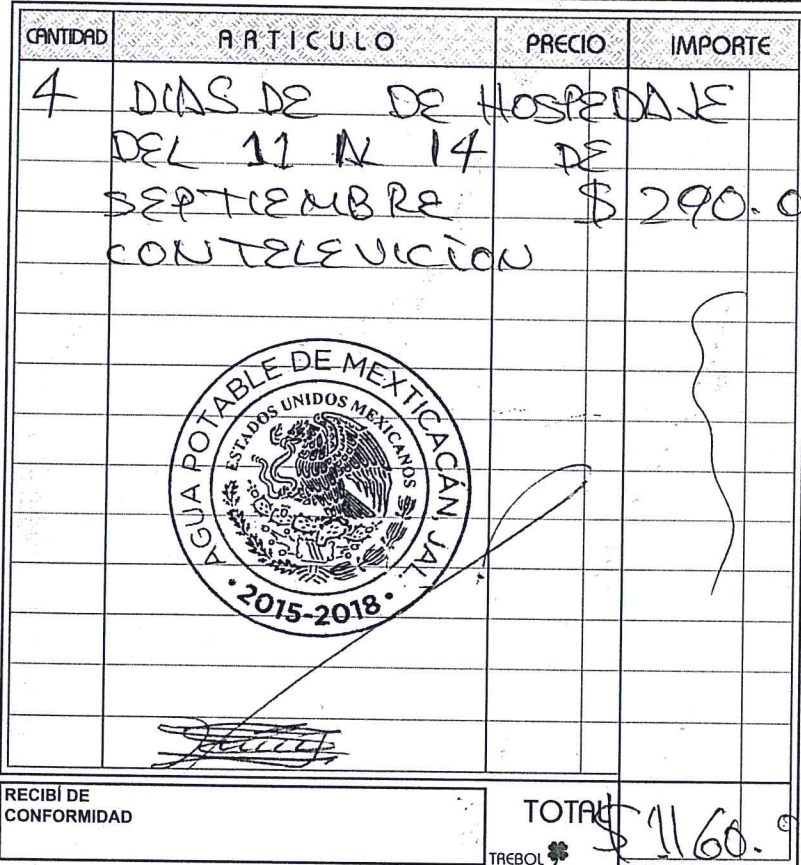 CANTIDAD ARTICULO PRECIO IMPORTE
4 DIAS DE DE HOSPEDAJE
DEL 11 AL 14 DE
SEPTIEMBRE $ 290.0
CON TELEVICION
AGUA POTABLE DE MEXTICACÁN, JAL.
ESTADOS UNIDOS MEXICANOS
• 2015-2018 •
RECIBÍ DE
CONFORMIDAD
TOTAL $ 1160.0
TREBOL